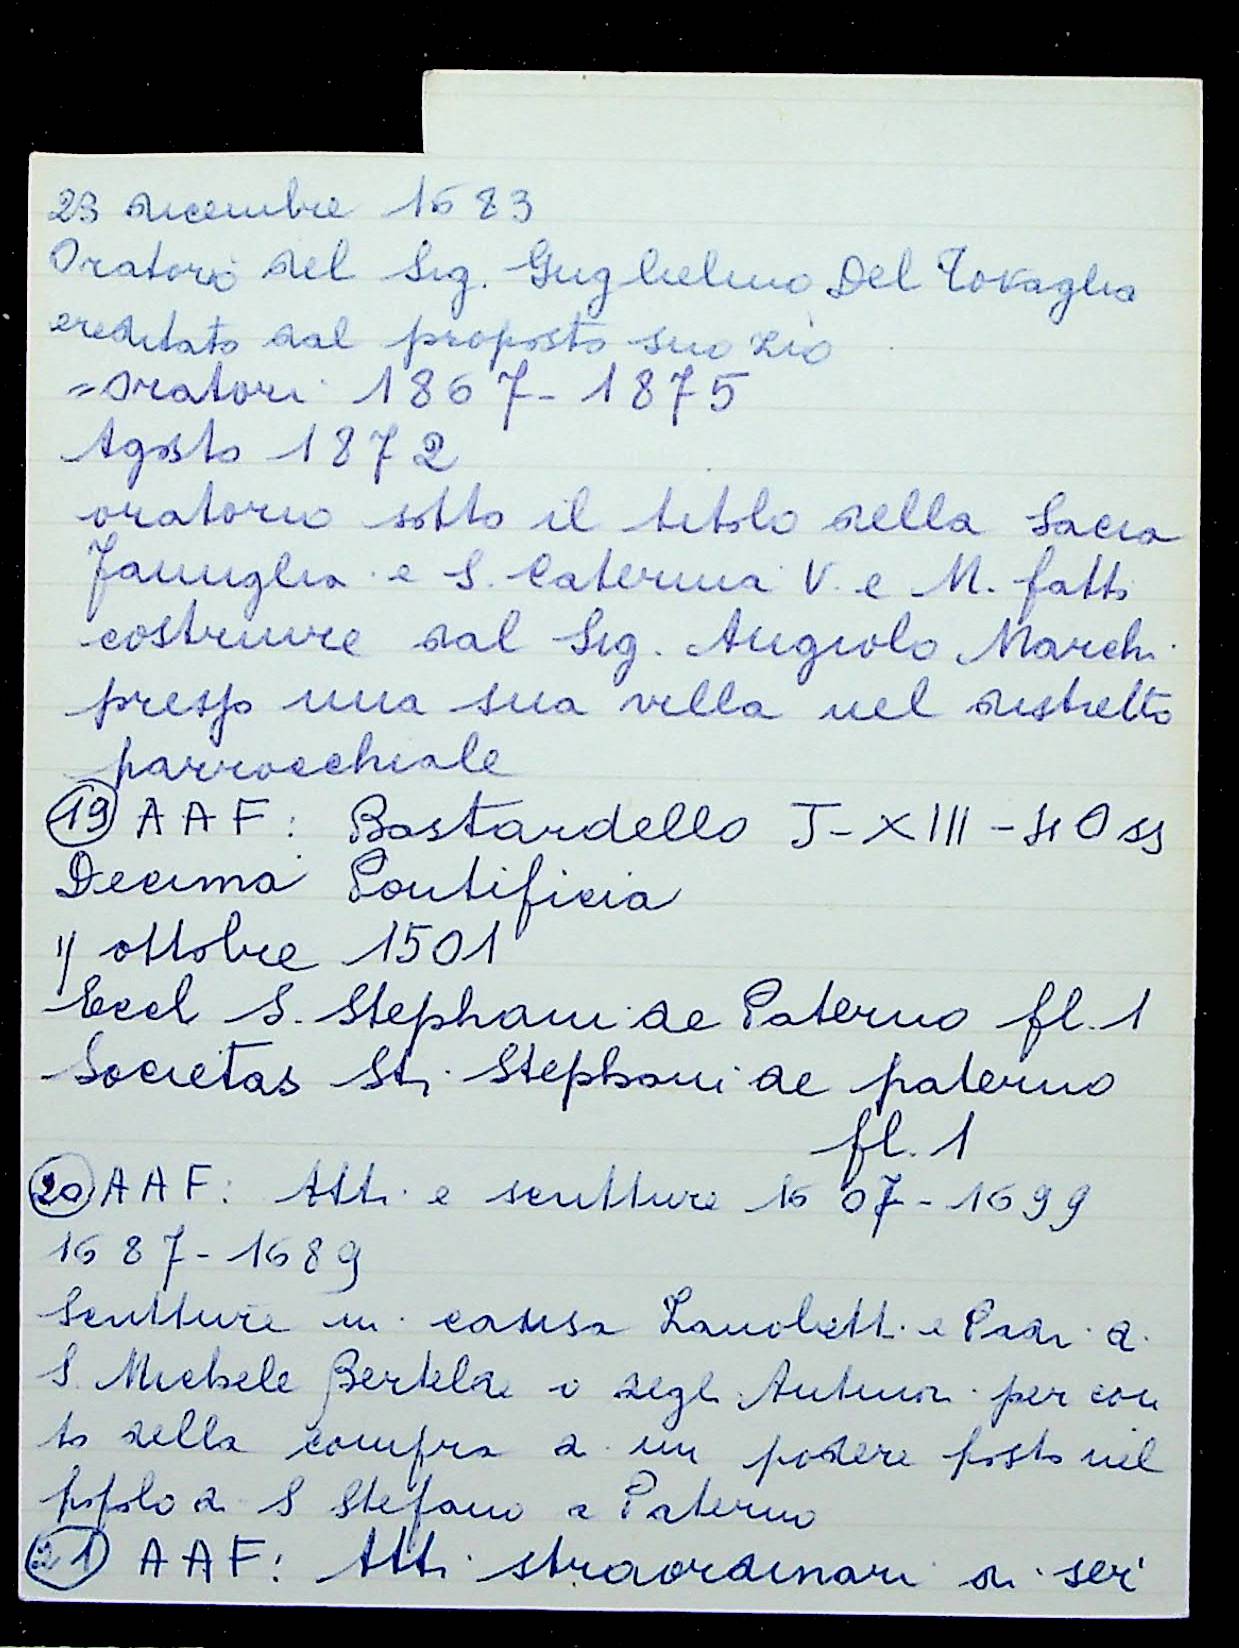 23 dicembre 1683
Oratorio del Sig. Guglielmo Del Tovaglia
ereditato dal proposto suo zio
=Oratori 1867-1875
Agosto 1872
oratorio sotto il titolo della Sacra
Famiglia e S. Caterina V. e M. fatto
costruire dal Sig. Angiolo Marchi
presso una sua villa nel distretto
parrocchiale
(19) AAF: Bastardello J-XIII-40ss
Decima Pontificia
1) ottobre 1501
Eccl S. Stephani de Paterno fl. 1
Societas Sti Stephani de paterno
fl. 1
(20) AAF: Atti e scritture 1607-1699
1687-1689
Scritture in causa Zanobetti e Padri di
S. Michele Bertelde o degl Antinori per con
to della compra di un podere posto nel
popolo di S Stefano a Paterno
(21) AAF: Atti straordinari di ser